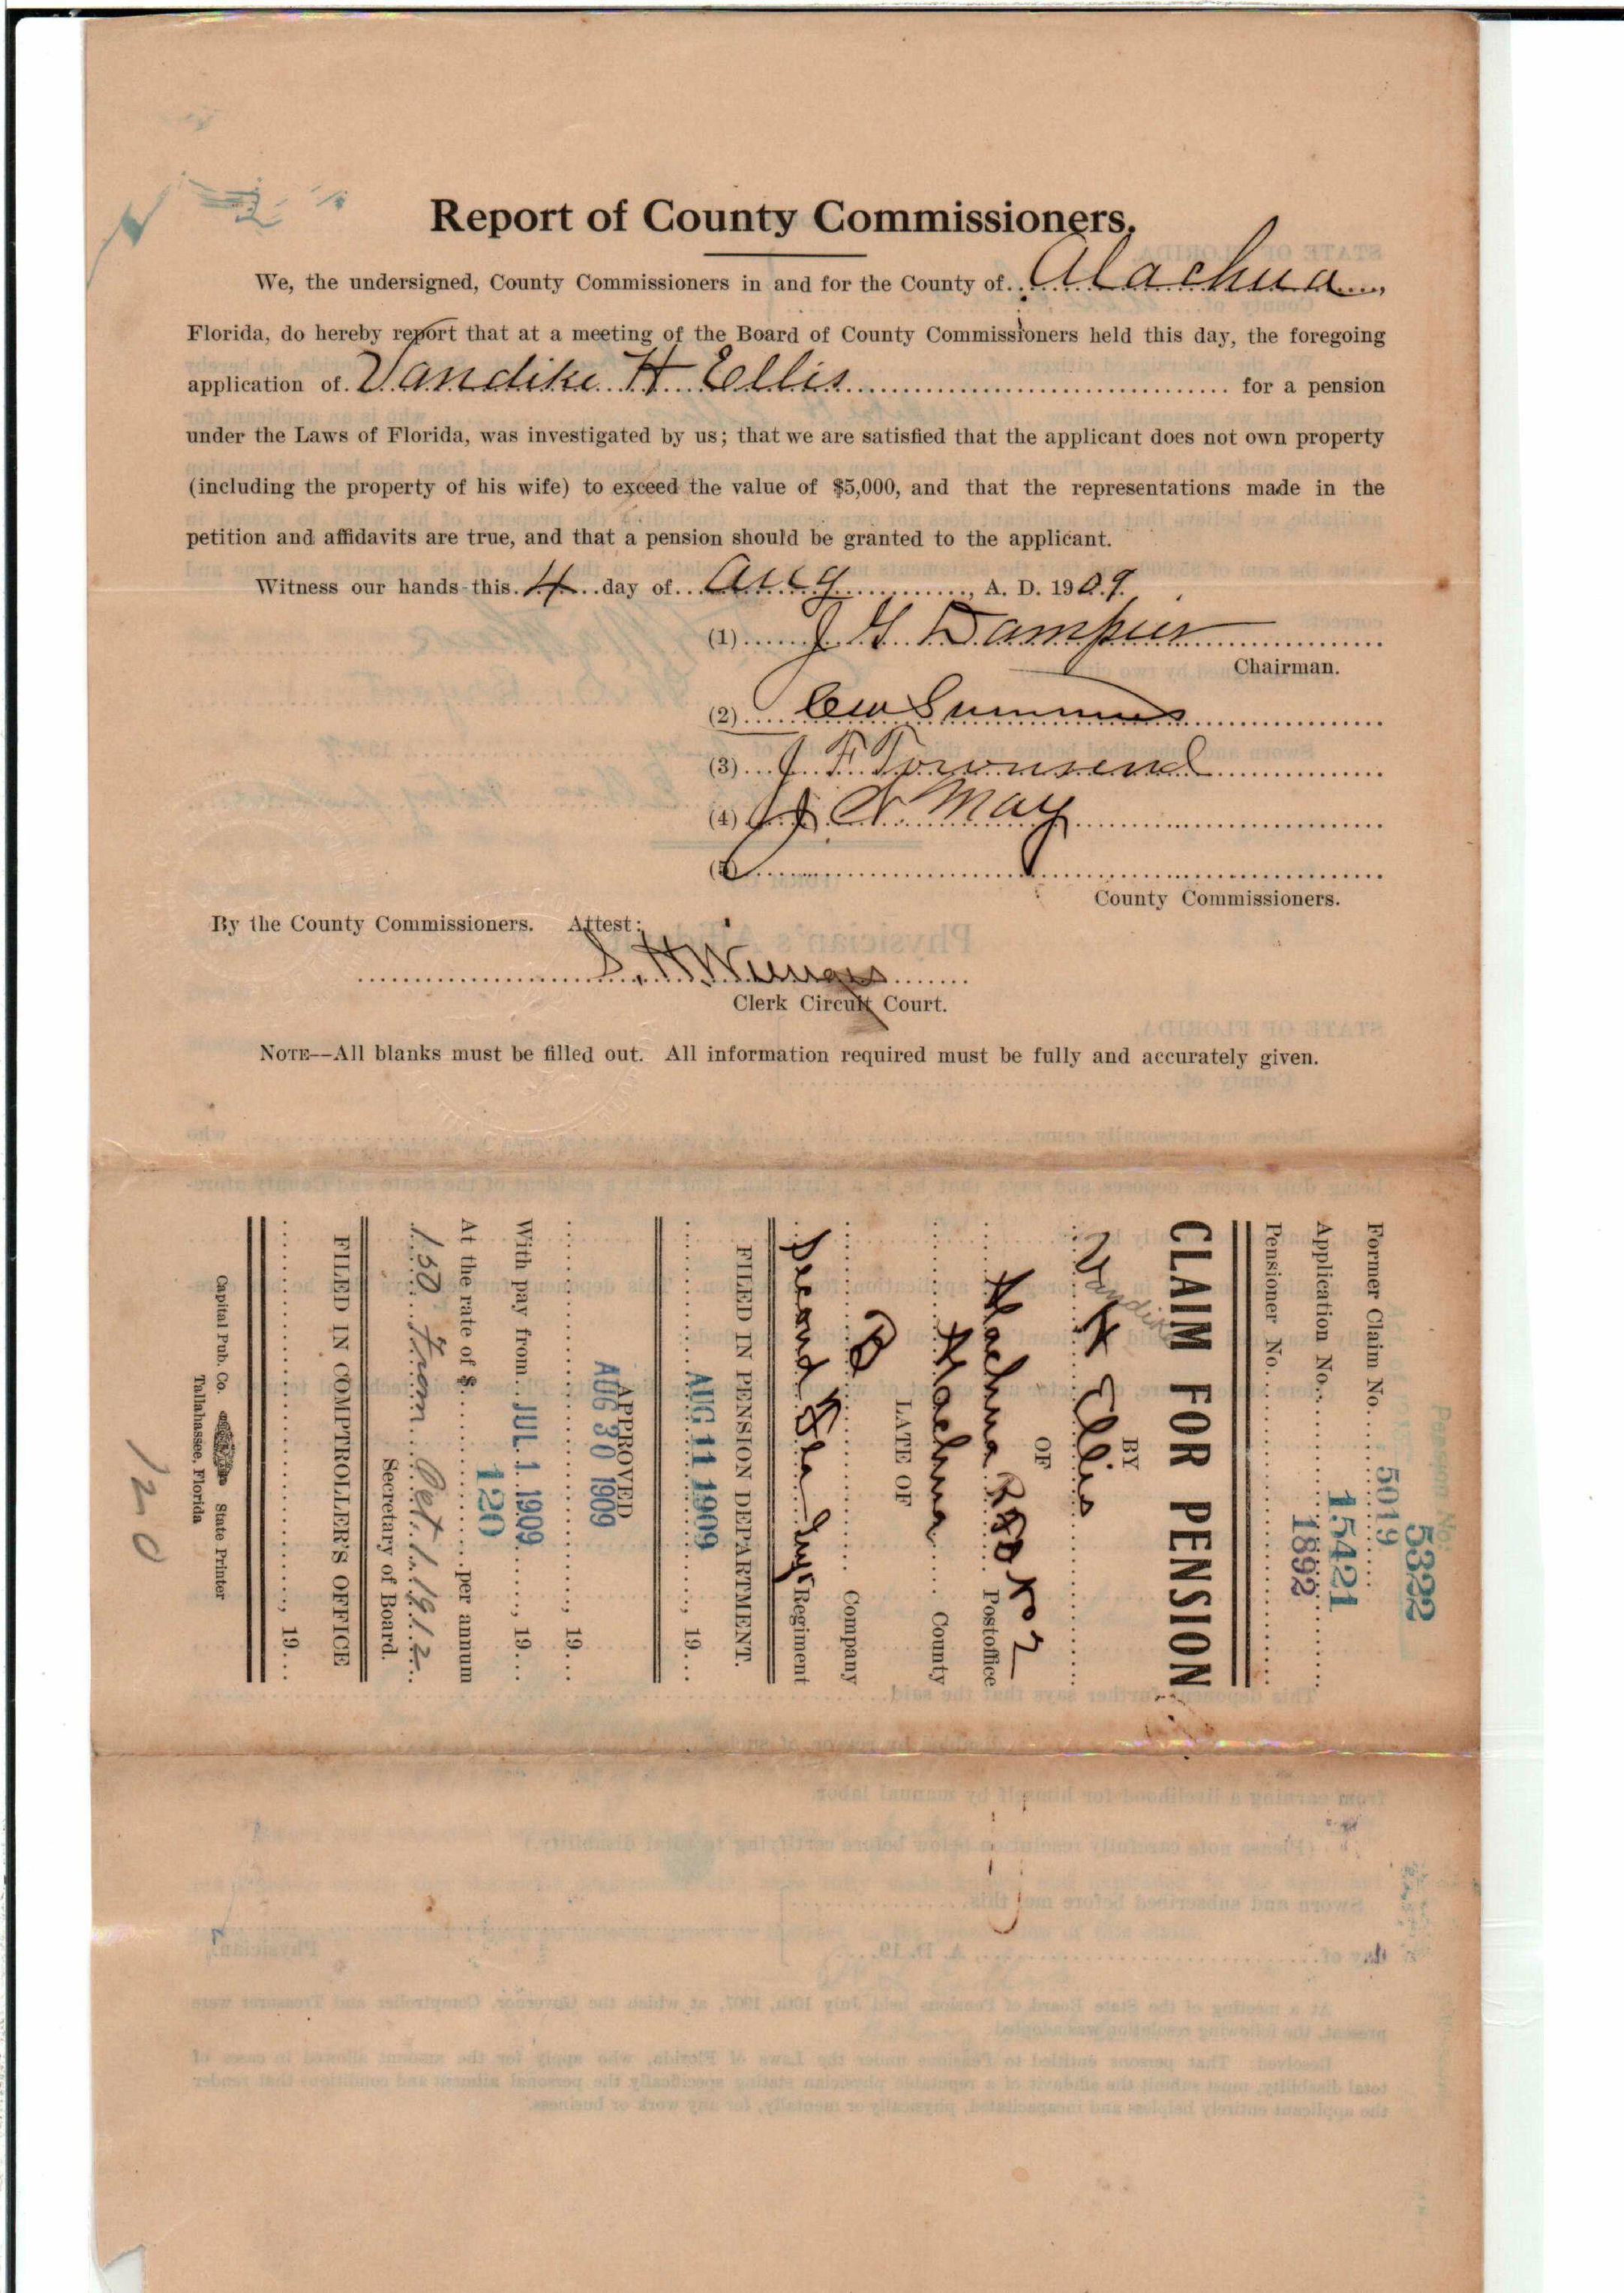 Report of County Commissioners.
We, the undersigned, County Commissioners in and for the County of Alachua,
Florida, do hereby report that at a meeting of the Board of County Commissioners held this day, the foregoing
application of Vandike H Ellis for a pension
under the Laws of Florida, was investigated by us; that we are satisfied that the applicant does not own property
(including the property of his wife) to exceed the value of $5,000, and that the representations made in the
petition and affidavits are true, and that a pension should be granted to the applicant.
Witness our hands this 4 day of Aug, A. D. 1909.
(1) J G Dampier
Chairman.
(2) C W Summers
(3) J. F. Townsend
(4) J N May
(5)
County Commissioners.
By the County Commissioners. Attest:
S. H. Wienges
Clerk Circuit Court.
NOTE--All blanks must be filled out. All information required must be fully and accurately given.
Pension No.
5322
Former Claim No. 5019
Application No. 15421
Pensioner No. 1892
CLAIM FOR PENSION
BY
Vandike
V H Ellis
OF
Alachua R Postoffice
Alachua County
LATE OF
B Company
Second Fla Regiment
FILED IN PENSION DEPARTMENT.
AUG 11 1909, 19
APPROVED
AUG 30 1909, 19
With pay from JUL 1 1909, 19
120
At the rate of $ per annum
150 from Oct. 1. 1912
Secretary of Board.
FILED IN COMPTROLLER'S OFFICE
, 19
Capital Pub. Co. State Printer
Tallahassee, Florida
120